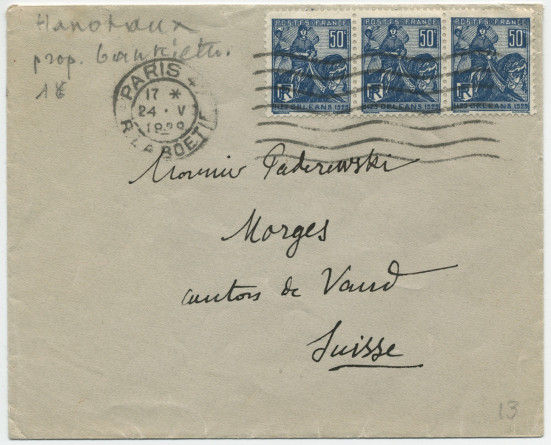 Hanotaux
prop.
1 *
PARIS
17 *
24 · V
1929
R. LA BOETIE
POSTES FRANCE POSTES FRANCE POSTES FRANCE
50c 50c 50c
RF RF RF
1429 ORLÉANS 1929 1429 ORLÉANS 1929 1429 ORLÉANS 1929
Monsieur Paderewski
Morges
canton de Vaud
Suisse
13